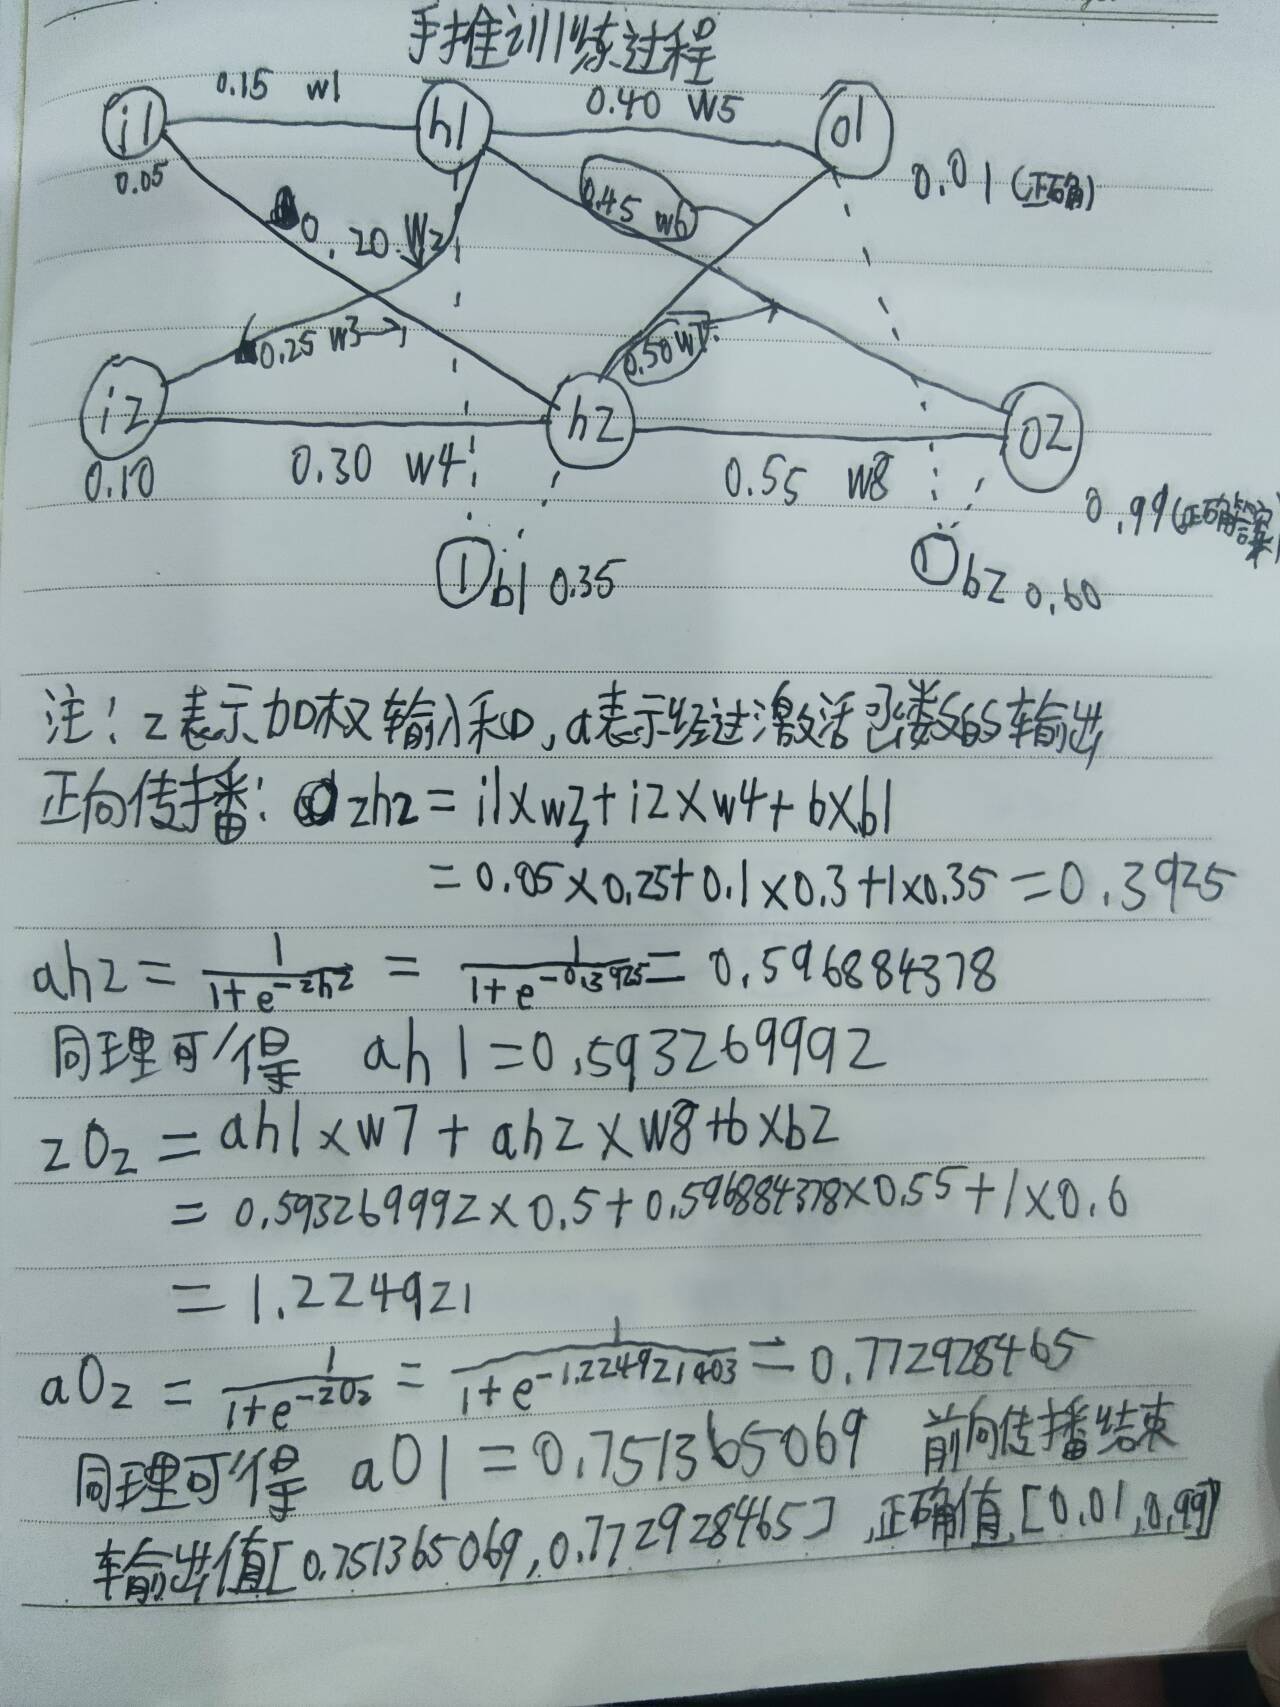 手推训练过程
0.15 w1
0.40 w5
i1
h1
o1
0.05
0.01 (正确)
0.45 w6
0.20 w2
0.25 w3
0.50 w7
i2
h2
o2
0.10
0.30 w4
0.55 w8
0.99 (正确答案)
1 b1 0.35
1 b2 0.60
注: z表示加权输入和, a表示经过激活函数的输出
正向传播: zh2 = i1×w3 + i2×w4 + b×b1
= 0.05×0.25+0.1×0.3+1×0.35 = 0.3925
ah2 = 1/(1+e^-zh2) = 1/(1+e^-0.3925) = 0.596884378
同理可得 ah1 = 0.593269992
zO2 = ah1×w7 + ah2×w8+b×b2
= 0.593269992×0.5+0.596884378×0.55+1×0.6
= 1.224921
aO2 = 1/(1+e^-zO2) = 1/(1+e^-1.224921403) = 0.772928465
同理可得 aO1 = 0.751365069 前向传播结束
输出值[0.751365069, 0.772928465], 正确值[0.01, 0.99]